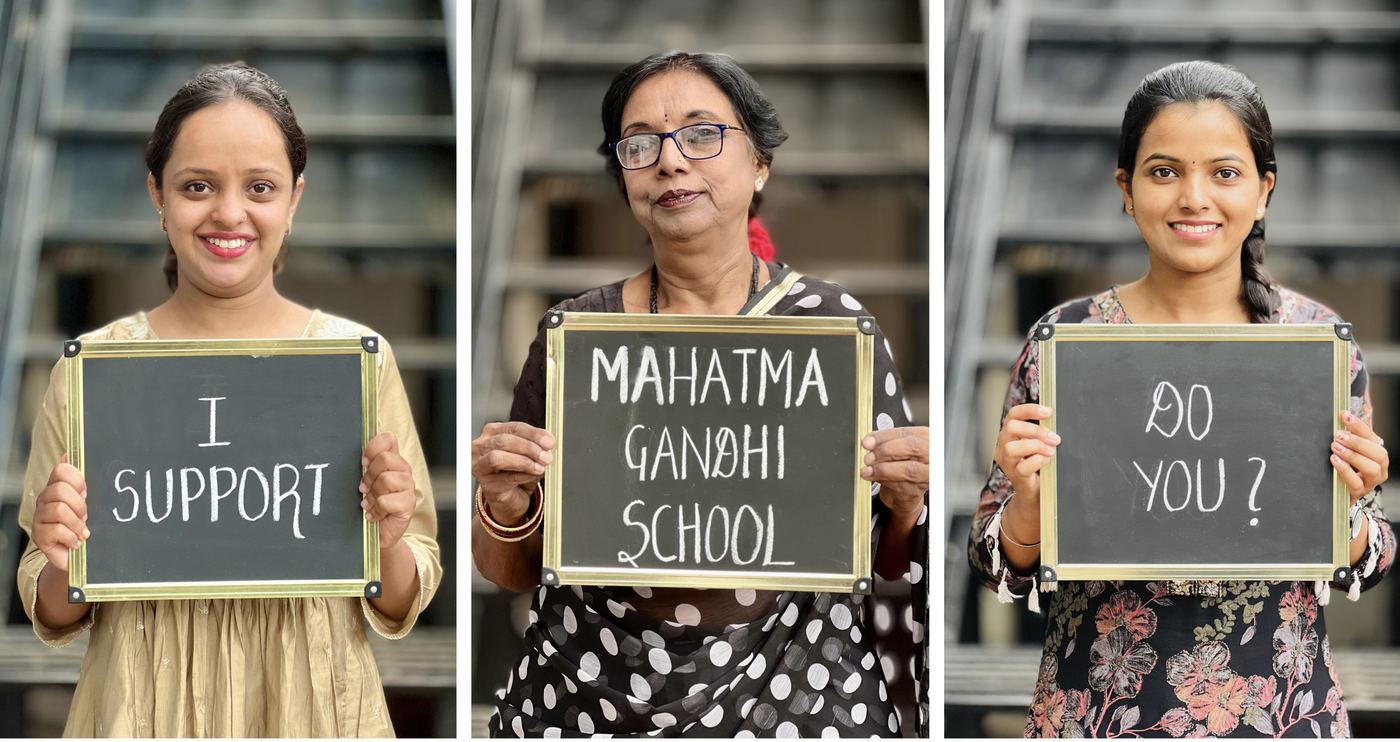 I
SUPPORT
MAHATMA
GANDHI
SCHOOL
DO
YOU ?